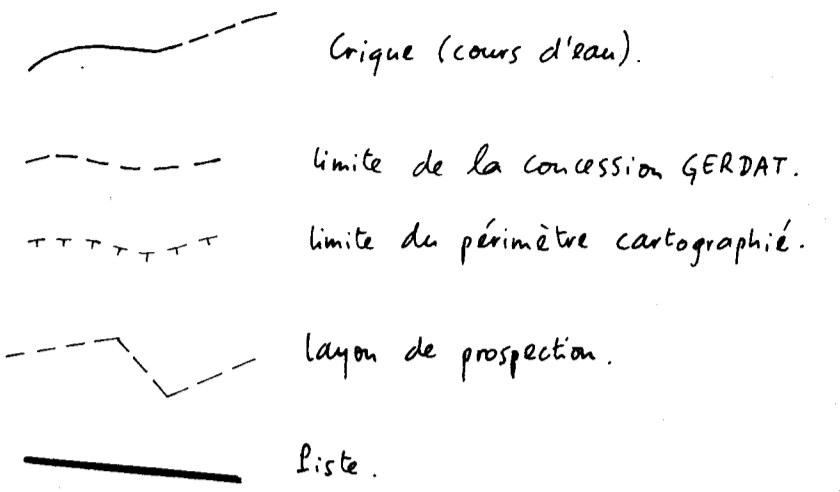 Crique (cours d'eau).
limite de la concession GERDAT.
limite du périmètre cartographié.
layon de prospection.
Piste.